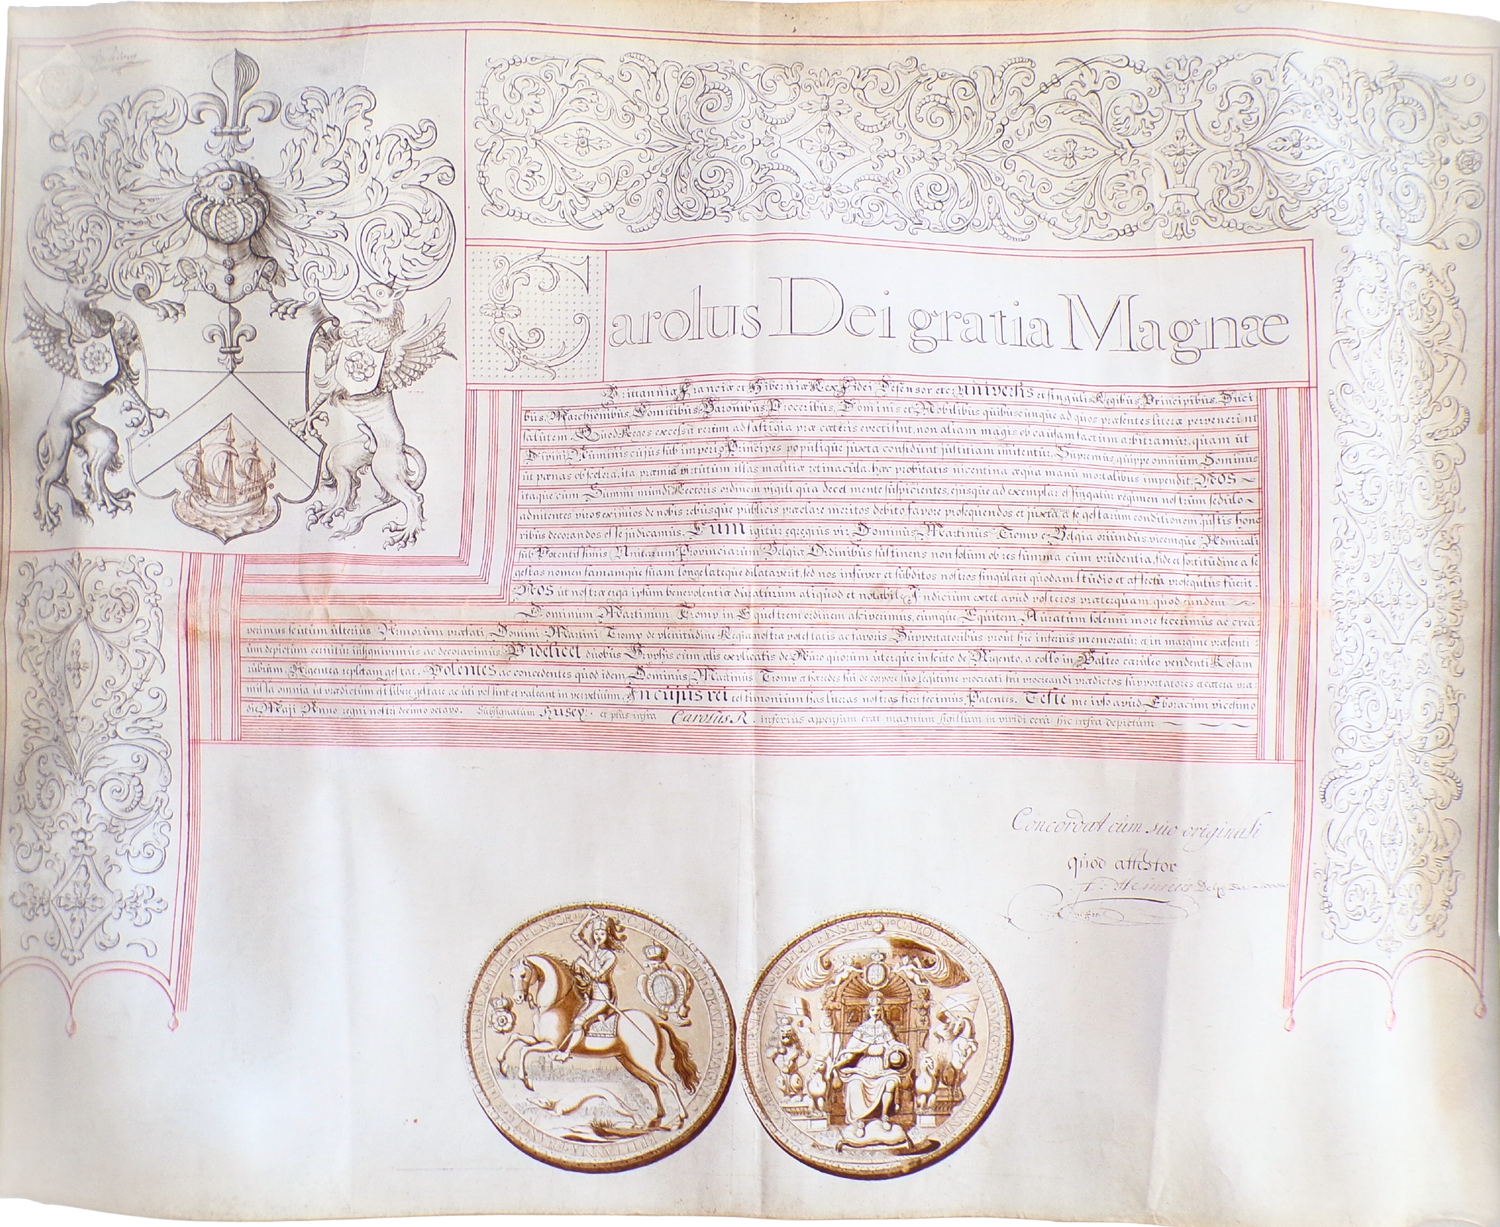 Carolus Dei gratia Magnæ
Britanniæ Franciæ et Hiberniæ Rex Fidei Defensor etc: universis et singulis Regibus, Principibus, Duci
bus, Marchionibus, Comitibus, Baronibus, Proceribus, Dominis et Nobilibus quibuscunque ad quos præsentes literæ pervenerint
salutem. Quod Reges excelsa rerum ad fastigia præ cæteris evectisunt, non aliam magis ob causam factum arbitramur, quam ut
Divini Numinis cujus sub imperio Principes populique juxta considunt justitiam imitentur. Supremus quippe omnium Dominus
ut pœnas ob scelera, ita præmia ob virtutum illas malitiæ retinacula, hæc probitatis incentiva æqua manu mortalibus impendit. NOS
itaque cum Summi mundi Rectoris ordinem vigili qua decet mente suspicientes, ejusque ad exemplar et singulare regimen nostrum sedulo
admitentes viros eximios de nobis rebusque publicis præclare meritos debito favore prosequendos et juxta a se gestarum conditionem justis hono
ribus decorandos esse judicamus. Cum igitur egregius vir Dominus Martinus Tromp e Belgia oriundus vicemque Admirali
sub Potentissimis Unitarum Provinciarum Belgiæ Ordinibus sustinens non solum ob res summa cum prudentia, fide et fortitudine a se
gestas nomen famamque suam longe lateque dilataverit, sed nos insuper et subditos nostros singulari quodam studio et affectu prosequutus fuerit.
NOS ut nostra erga ipsum benevolentiæ duraturum aliquod et notabile Indicium extet apud posteros præterquam quod eundem
Dominum Martinum Tromp in Equestrem ordinem asciverimus, eumque Equitem Auratum solenni more fecerimus ac crea
verimus scutum ulterius Armorum præfati Domini Martini Tromp de plenitudine Regiæ nostræ potestatis ac favoris Supportatoribus prout hic inferius memoratur et in margine præsenti
um depictum cernitur insignivimus ac decoravimus Videlicet duobus Gryphis cum alis explicatis de Auro quorum uterque in scuto de Argento, a collo in Balteo cæruleo pendenti Rosam
rubiam Argentea repletam gestat. Volentes ac concedentes quod idem Dominus Martinus Tromp et hæredes sui de corpore suo legitime procreati sive procreandi prædictos supportatores et cætera præ
missa omnia ut prædictum est libere gestare ac uti possint et valeant in perpetuum. In cujus rei testimonium has literas nostras fieri fecimus Patentes. Teste me ipso apud Eboracum vicesimo
die Maji Anno regni nostri decimo octavo. Subsignatum Husey. et plus infra Carolus R. inferius appensum erat magnum sigillum in viridi cera hic infra depictum
Concordat cum suo originali
quod attestor